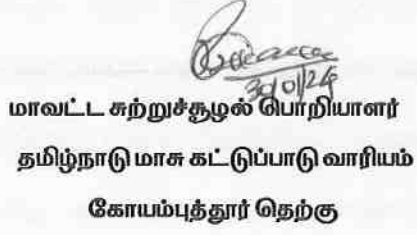 30/01/24
மாவட்ட சுற்றுச்சூழல் பொறியாளர்
தமிழ்நாடு மாசு கட்டுப்பாடு வாரியம்
கோயம்புத்தூர் தெற்கு